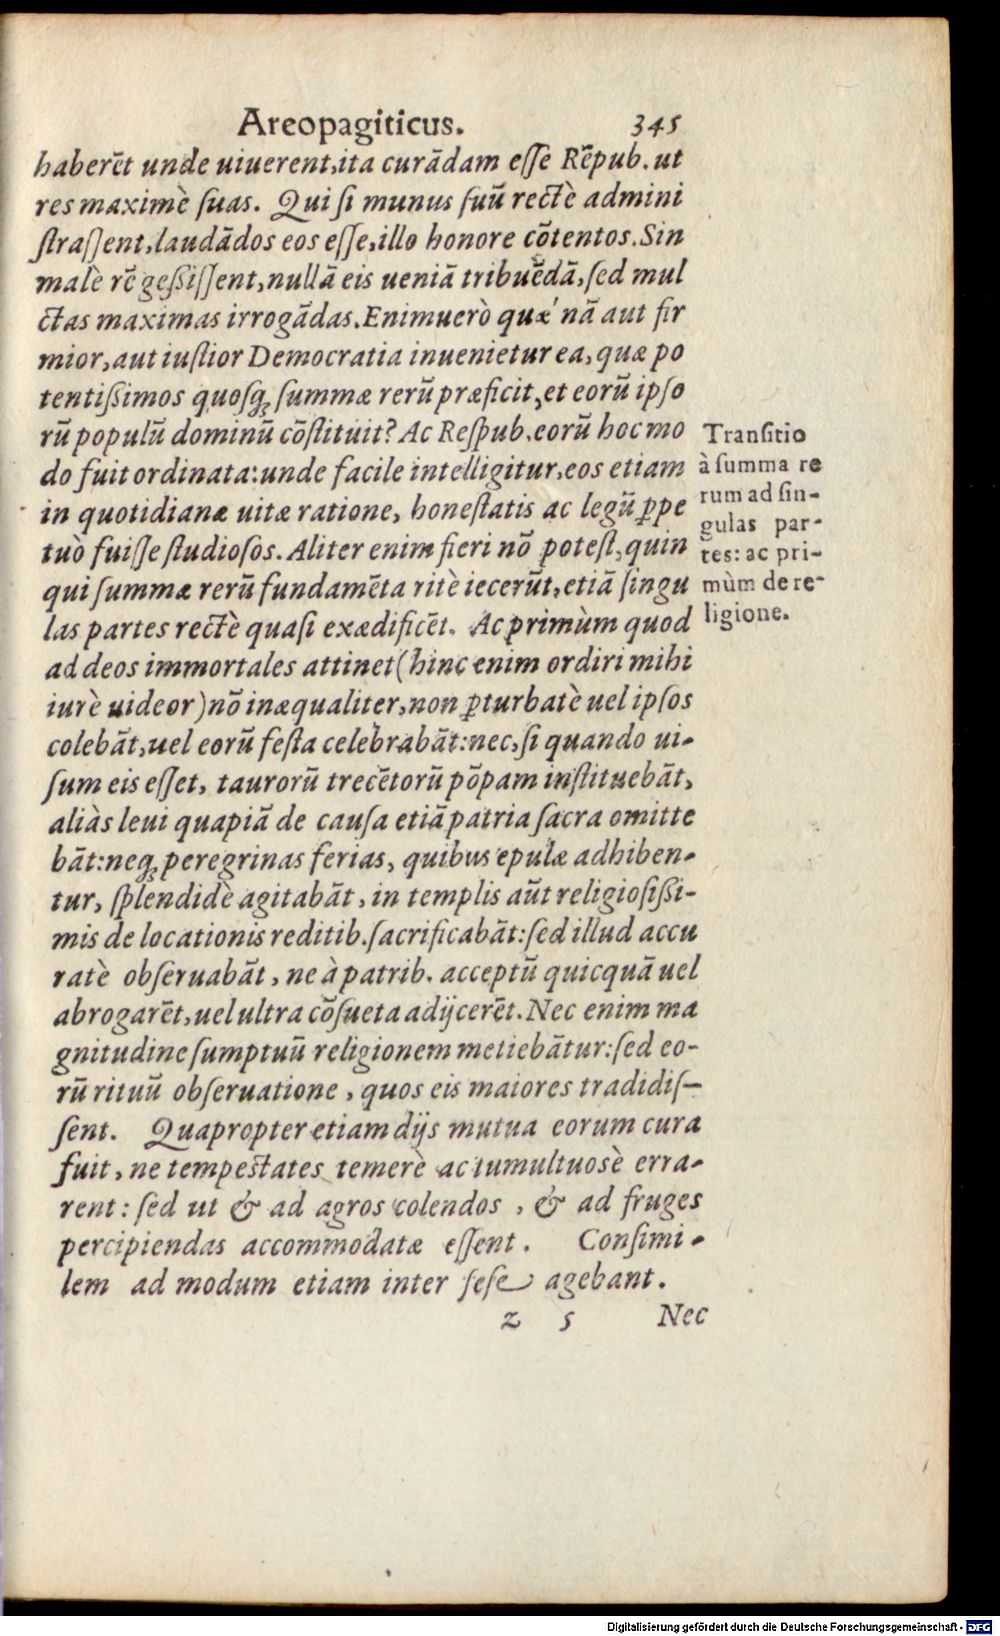 Areopagiticus. 345
haberēt unde uiuerent, ita curādam eſſe Rēpub. ut
res maximè ſuas. Qui ſi munus ſuū rectè admini
ſtraſſent, laudādos eos eſſe, illo honore cōtentos. Sin
malè rē geßiſſent, nullā eis ueniā tribuēdā, ſed mul
ctas maximas irrogādas. Enimuerò quæ nā aut fir
mior, aut iuſtior Democratia inuenietur ea, quæ po
tentißimos quoſq; ſummæ rerū præficit, et eorū ipſo
rū populū dominū cōſtituit? Ac Reſpub. eorū hoc mo
do fuit ordinata: unde facile intelligitur, eos etiam
in quotidianæ uitæ ratione, honeſtatis ac legū ꝑpe
tuò fuiſſe ſtudioſos. Aliter enim fieri nō poteſt, quin
qui ſummæ rerū fundamēta ritè iecerūt, etiā ſingu
las partes rectè quaſi exædificēt. Ac primùm quod
ad deos immortales attinet (hinc enim ordiri mihi
iurè uideor) nō inæqualiter, non ꝑturbatè uel ipſos
colebāt, uel eorū feſta celebrabāt: nec, ſi quando ui-
ſum eis eſſet, taurorū trecētorū pōpam inſtituebāt,
aliàs leui quapiā de cauſa etiā patria ſacra omitte
bāt: neq; peregrinas ferias, quibus epulæ adhiben-
tur, ſplendidè agitabāt, in templis aūt religioſißi-
mis de locationis reditib. ſacrificabāt: ſed illud accu
ratè obſeruabāt, ne à patrib. acceptū quicquā uel
abrogarēt, uel ultra cōſueta adijcerēt. Nec enim ma
gnitudine ſumptuū religionem metiebātur: ſed eo-
rū rituū obſeruatione, quos eis maiores tradidiſ-
ſent. Quapropter etiam dijs mutua eorum cura
fuit, ne tempeſtates temerè ac tumultuosè erra-
rent: ſed ut & ad agros colendos, & ad fruges
percipiendas accommodatæ eſſent. Conſimi-
lem ad modum etiam inter ſeſe agebant.
z 5 Nec
Tranſitio
à ſumma re
rum ad ſin-
gulas par-
tes: ac pri-
mùm de re-
ligione.
Digitalisierung gefördert durch die Deutsche Forschungsgemeinschaft - DFG